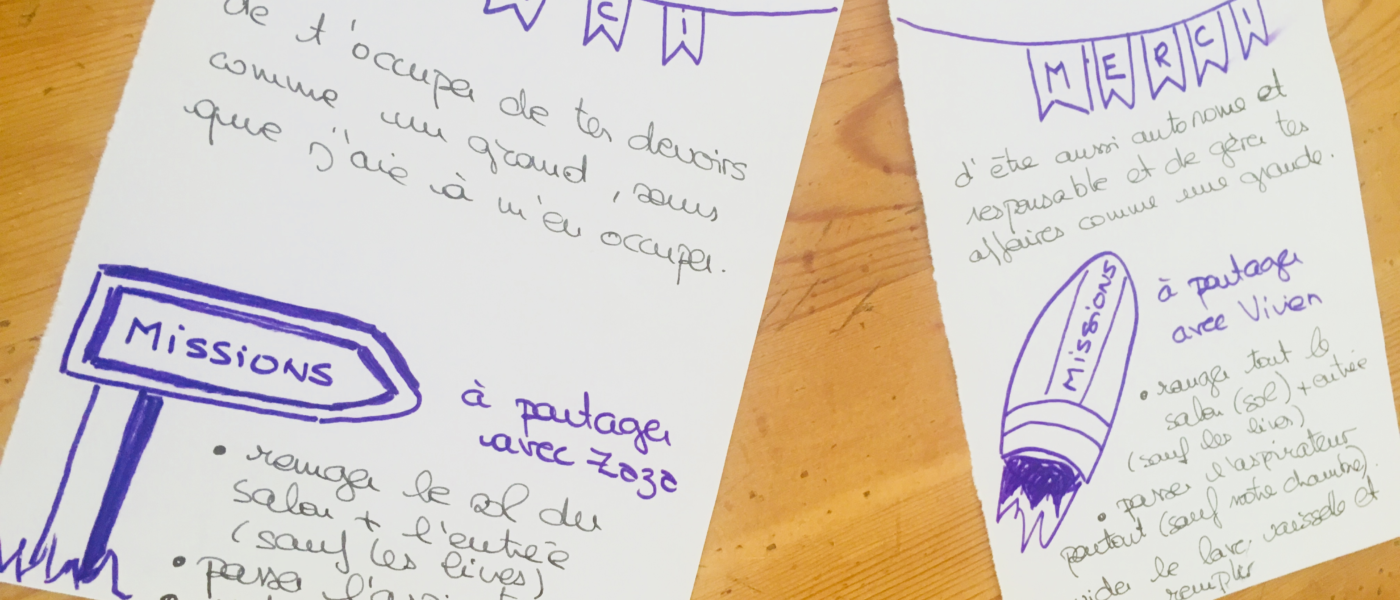 CI
de t'occuper de tes devoirs
comme un grand, sans
que j'aie à m'en occuper.
MissiONS
à partager
avec Zozo
• ranger le sol du
salon + l'entrée
(sauf les livres)
• passer
MERCI
d'être aussi autonome et
responsable et de gérer tes
affaires comme une grande.
MissiONS
à partager
avec Vivien
• ranger tout le
salon (sol) + entrée
(sauf les livres)
• passer l'aspirateur
partout (sauf notre chambre).
vider le lave vaisselle et
remplir